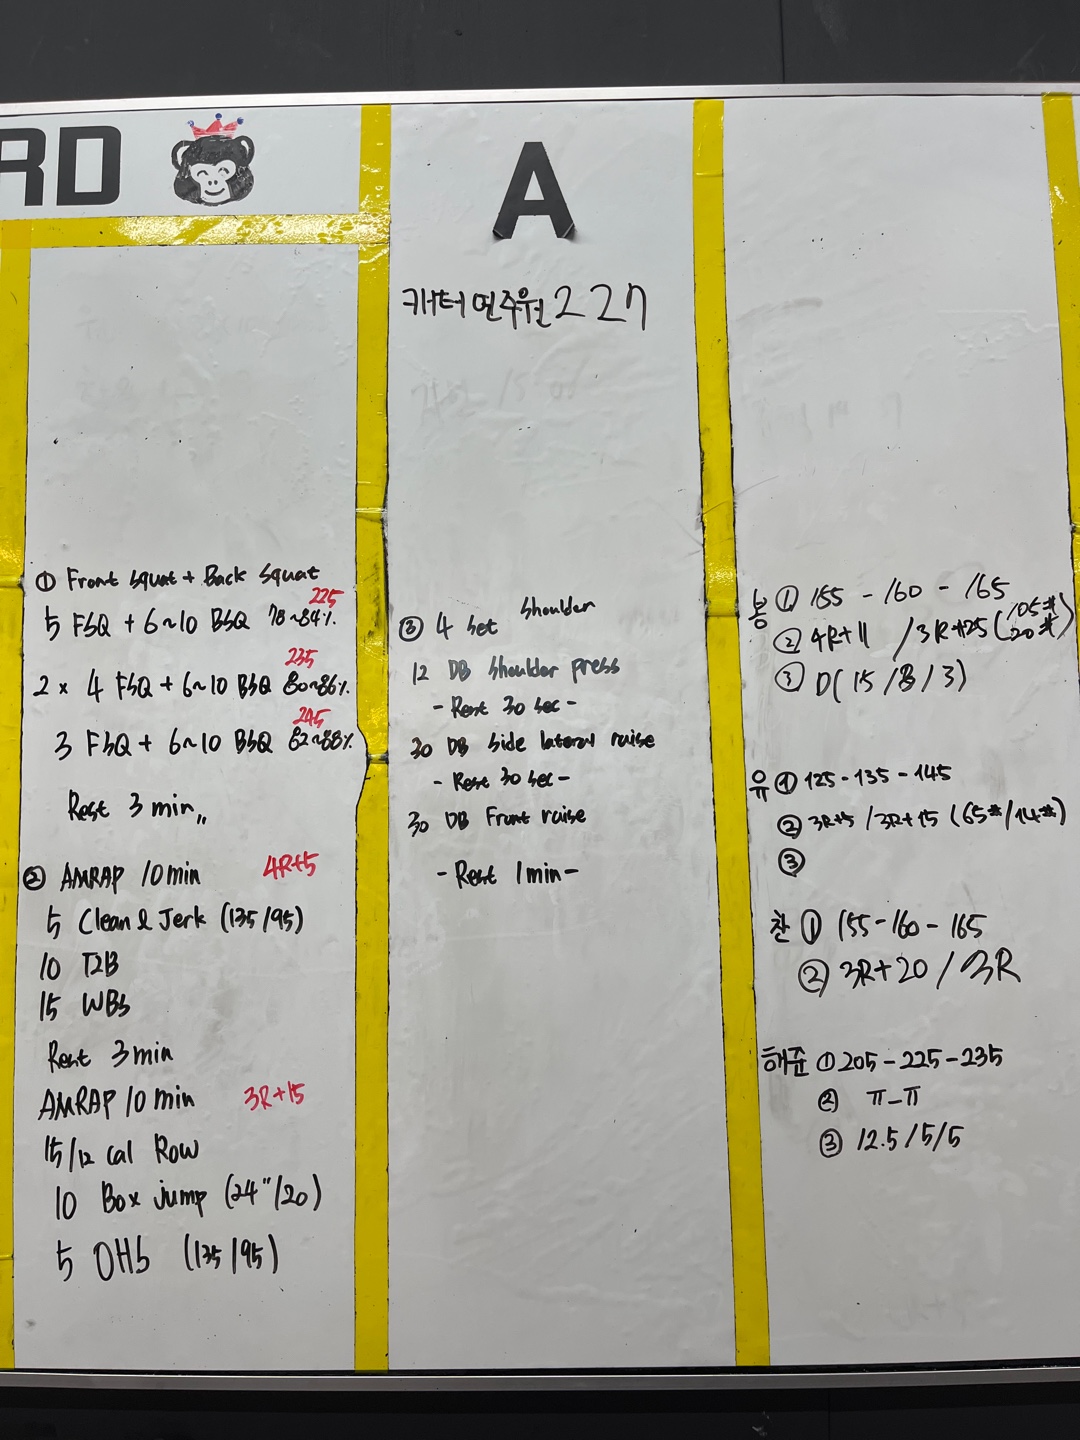 RD
① Front squat + Back squat
225
5 FSQ + 6~10 BSQ 78~84%
235
2 x 4 FSQ + 6~10 BSQ 80~86%
245
3 FSQ + 6~10 BSQ 82~88%
Rest 3 min,,
② AMRAP 10 min 4R+5
5 Clean & Jerk (135/95)
10 T2B
15 WBs
Rest 3 min
AMRAP 10 min 3R+15
15/12 cal Row
10 Box jump (24"/20)
5 OHS (135/95)
A
캐터 연주원 227
③ 4 set shoulder
12 DB shoulder press
- Rest 30 sec -
30 DB side lateral raise
- Rest 30 sec -
30 DB Front raise
- Rest 1 min -
봉 ① 155 - 160 - 165
② 4R+11 / 3R+25 (105# 20#)
③ D( 15 / 8 / 3)
유 ① 125 - 135 - 145
② 3R+5 / 3R+15 (65#/14#)
③
찬 ① 155 - 160 - 165
② 3R+20 / 3R
해준 ① 205 - 225 - 235
② π - π
③ 12.5 / 5 / 5